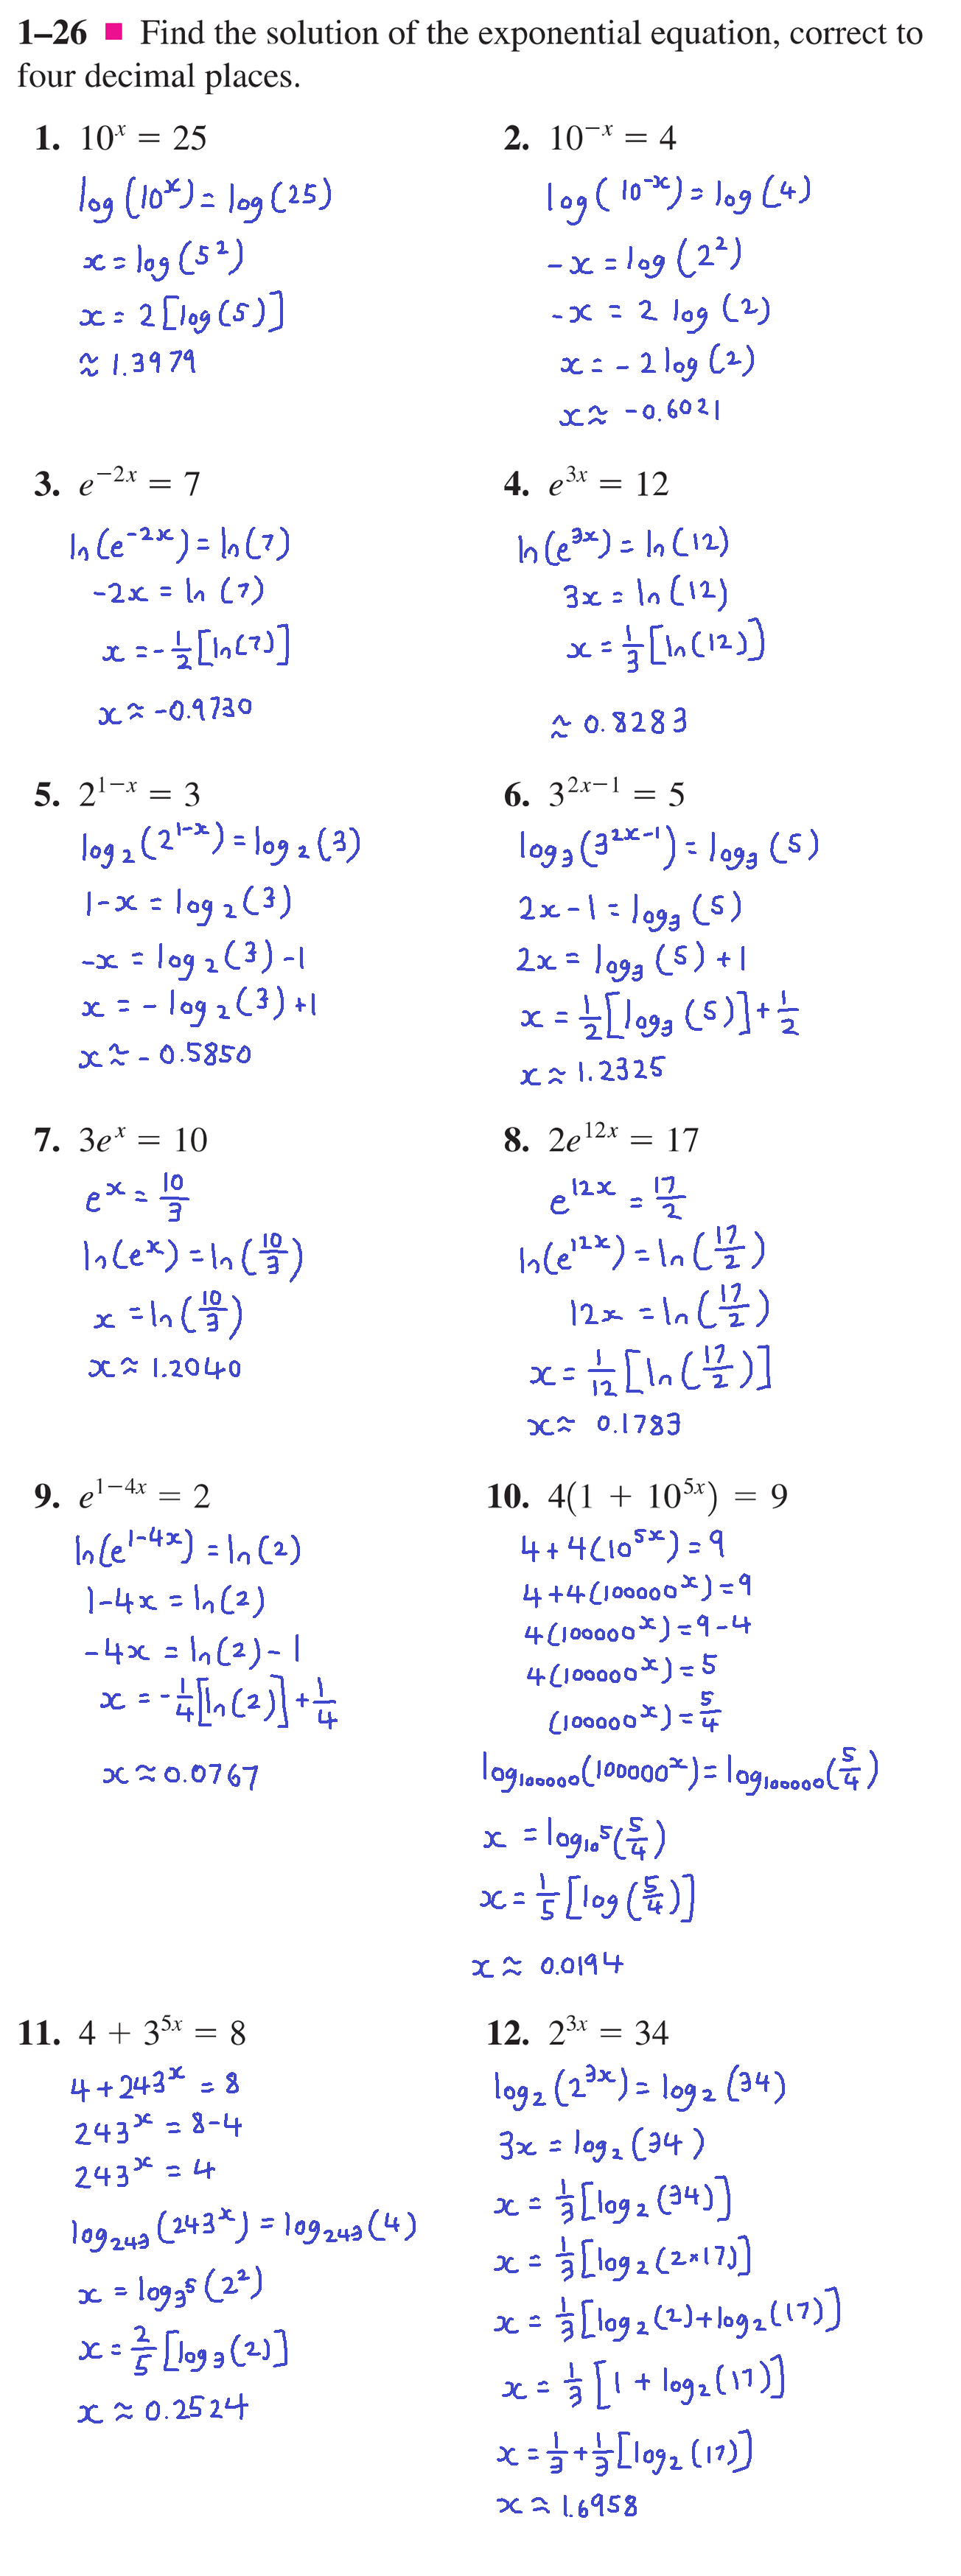 1–26 ■ Find the solution of the exponential equation, correct to
four decimal places.
1. 10^x = 25
log(10^x) = log(25)
x = log(5^2)
x = 2[log(5)]
≈ 1.3979
2. 10^{-x} = 4
log(10^{-x}) = log(4)
-x = log(2^2)
-x = 2 log(2)
x = -2 log(2)
x ≈ -0.6021
3. e^{-2x} = 7
ln(e^{-2x}) = ln(7)
-2x = ln(7)
x = -1/2[ln(7)]
x ≈ -0.9730
4. e^{3x} = 12
ln(e^{3x}) = ln(12)
3x = ln(12)
x = 1/3[ln(12)]
≈ 0.8283
5. 2^{1-x} = 3
log_2(2^{1-x}) = log_2(3)
1-x = log_2(3)
-x = log_2(3) -1
x = -log_2(3) +1
x ≈ -0.5850
6. 3^{2x-1} = 5
log_3(3^{2x-1}) = log_3(5)
2x-1 = log_3(5)
2x = log_3(5) +1
x = 1/2[log_3(5)] + 1/2
x ≈ 1.2325
7. 3e^x = 10
e^x = 10/3
ln(e^x) = ln(10/3)
x = ln(10/3)
x ≈ 1.2040
8. 2e^{12x} = 17
e^{12x} = 17/2
ln(e^{12x}) = ln(17/2)
12x = ln(17/2)
x = 1/12[ln(17/2)]
x ≈ 0.1783
9. e^{1-4x} = 2
ln(e^{1-4x}) = ln(2)
1-4x = ln(2)
-4x = ln(2) - 1
x = -1/4[ln(2)] + 1/4
x ≈ 0.0767
10. 4(1 + 10^{5x}) = 9
4+4(10^{5x}) = 9
4+4(100000^x) = 9
4(100000^x) = 9-4
4(100000^x) = 5
(100000^x) = 5/4
log_{100000}(100000^x) = log_{100000}(5/4)
x = log_{10^5}(5/4)
x = 1/5[log(5/4)]
x ≈ 0.0194
11. 4 + 3^{5x} = 8
4+243^x = 8
243^x = 8-4
243^x = 4
log_{243}(243^x) = log_{243}(4)
x = log_{3^5}(2^2)
x = 2/5[log_3(2)]
x ≈ 0.2524
12. 2^{3x} = 34
log_2(2^{3x}) = log_2(34)
3x = log_2(34)
x = 1/3[log_2(34)]
x = 1/3[log_2(2×17)]
x = 1/3[log_2(2)+log_2(17)]
x = 1/3[1 + log_2(17)]
x = 1/3 + 1/3[log_2(17)]
x ≈ 1.6958